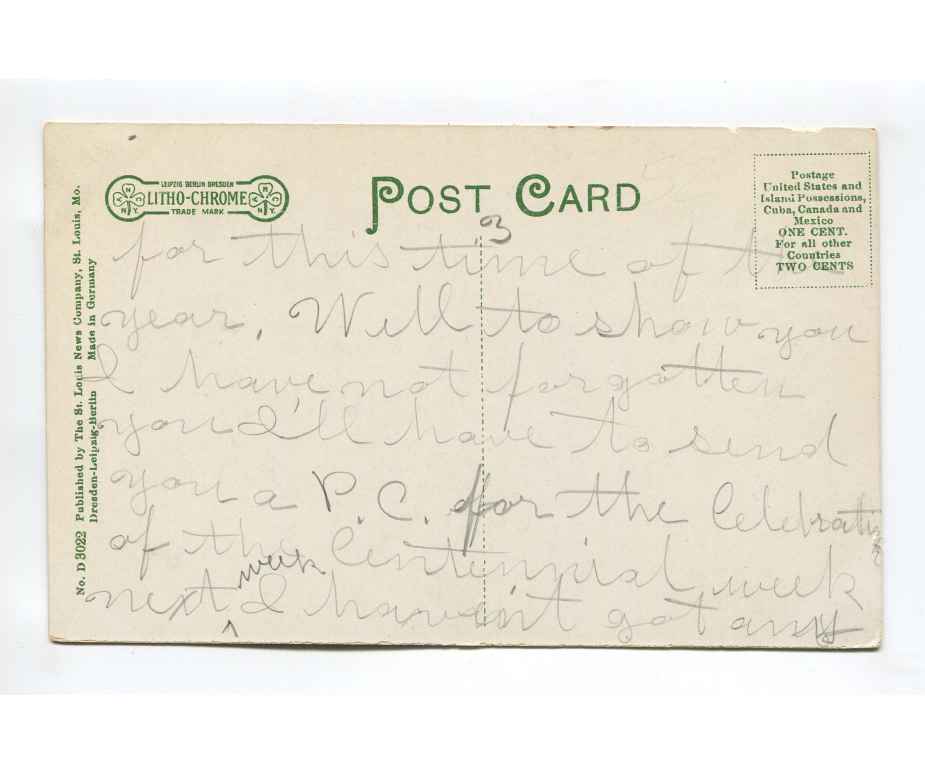 LEIPZIG BERLIN DRESDEN
LITHO-CHROME
TRADE MARK
N
A C
N Y
N
A C
N Y
POST CARD
Postage
United States and
Island Possessions,
Cuba, Canada and
Mexico
ONE CENT.
For all other
Countries
TWO CENTS
No. D 3022 Published by The St. Louis News Company, St. Louis, Mo.
Dresden-Leipzig-Berlin Made in Germany
3
for this time of the
year. Well to show you
I have not forgotten
you I'll have to send
you a P.C. for the Celebration
of the Centennial week
next week I haven't got any